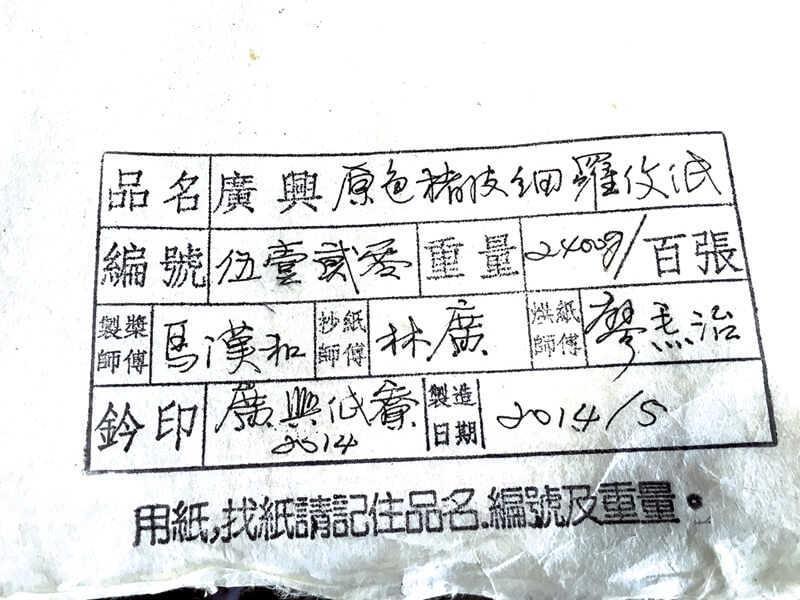 品名 廣興 原色楮皮細羅仗汦
編號 伍壹貳零 重量 2400g/百張
製漿師傅 馬漢和 抄紙師傅 林廣 烘紙師傅 廖焘治
鈐印 廣興低賨 2014 製造日期 2014/5
用紙,找紙請記住品名.編號及重量。